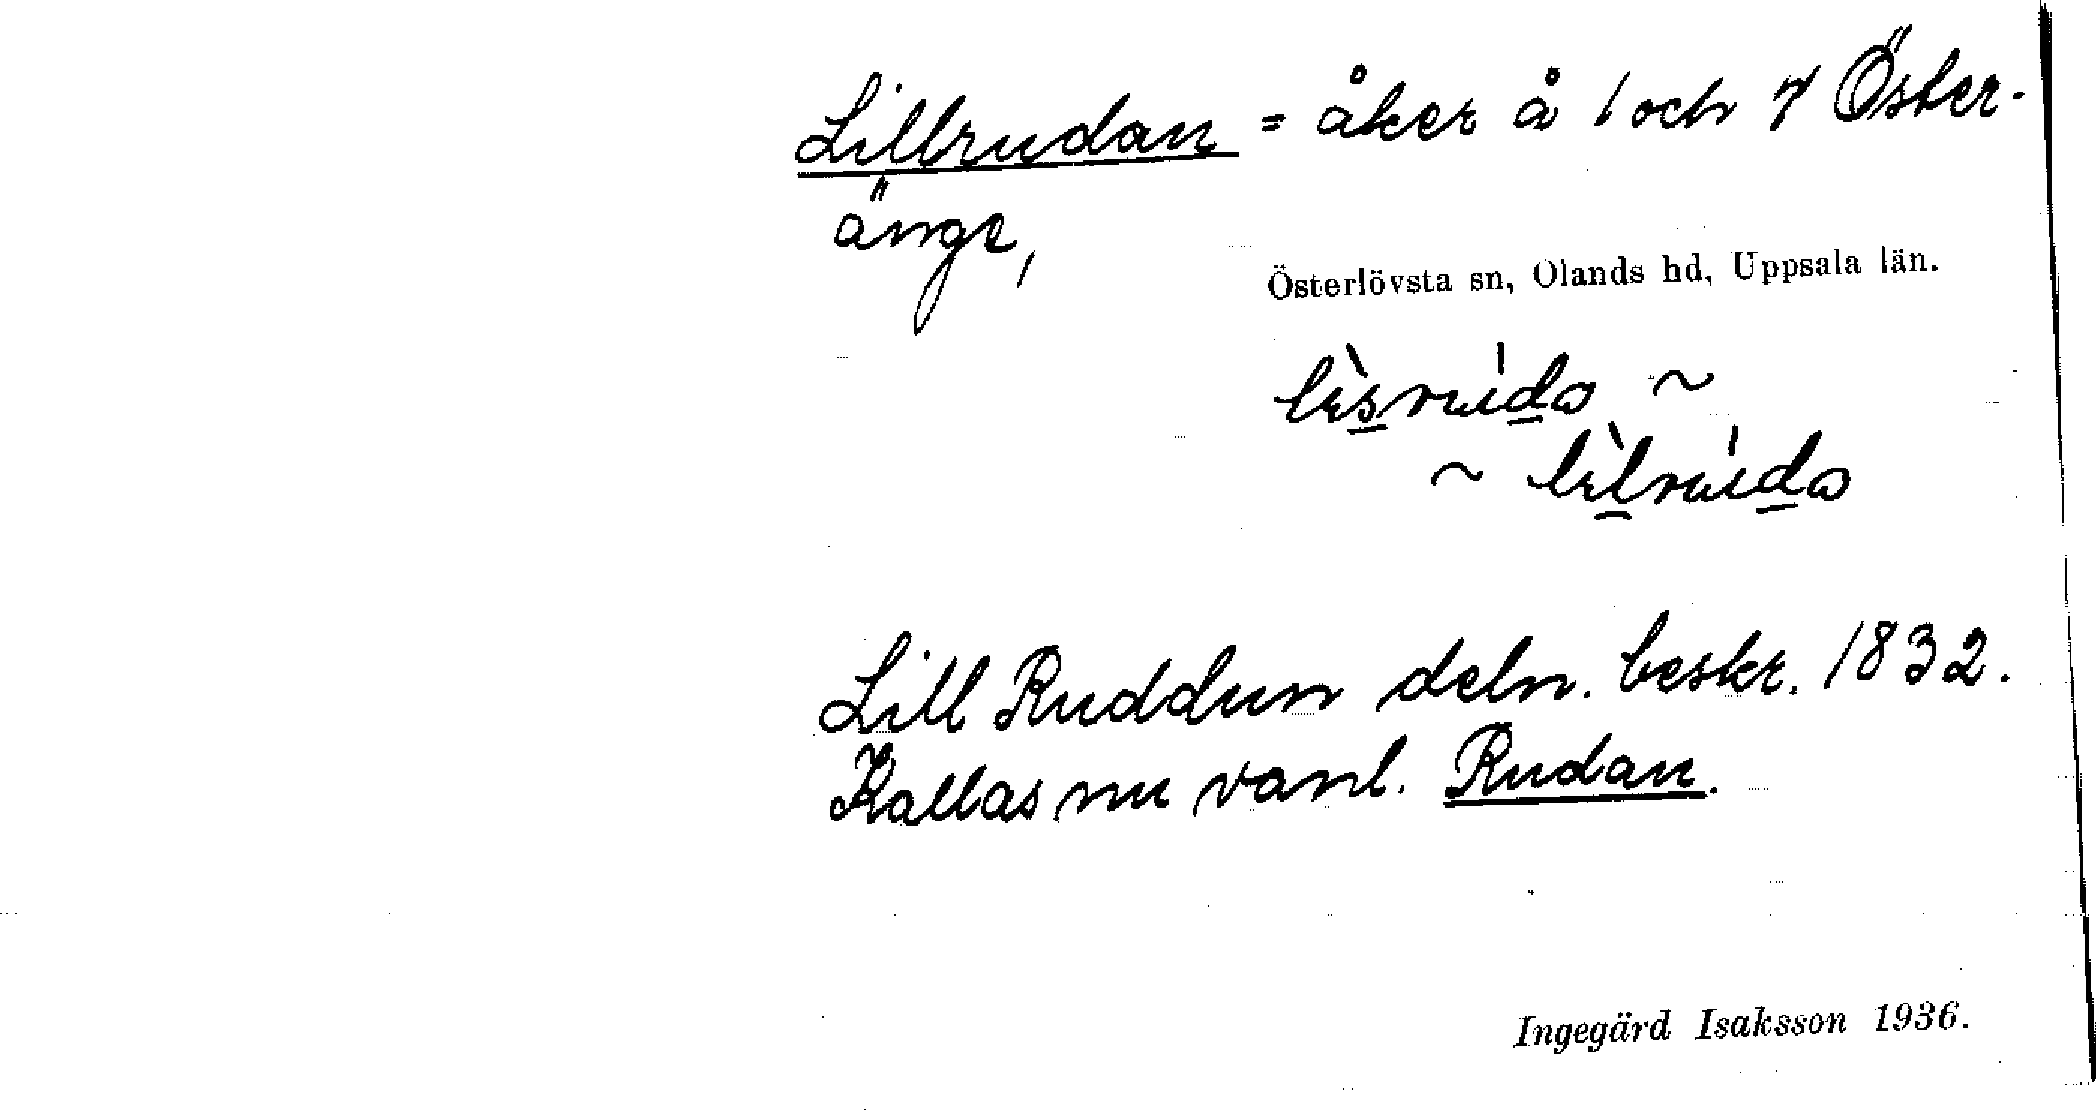 Lillrudan = åker å 1 och 7 Öster-
änge,
Österlövsta sn, Olands hd, Uppsala län.
~
~
Lill Ruddun deln. beskr. 1832.
Kallas nu vanl. Rudan.
Ingegärd Isaksson 1936.